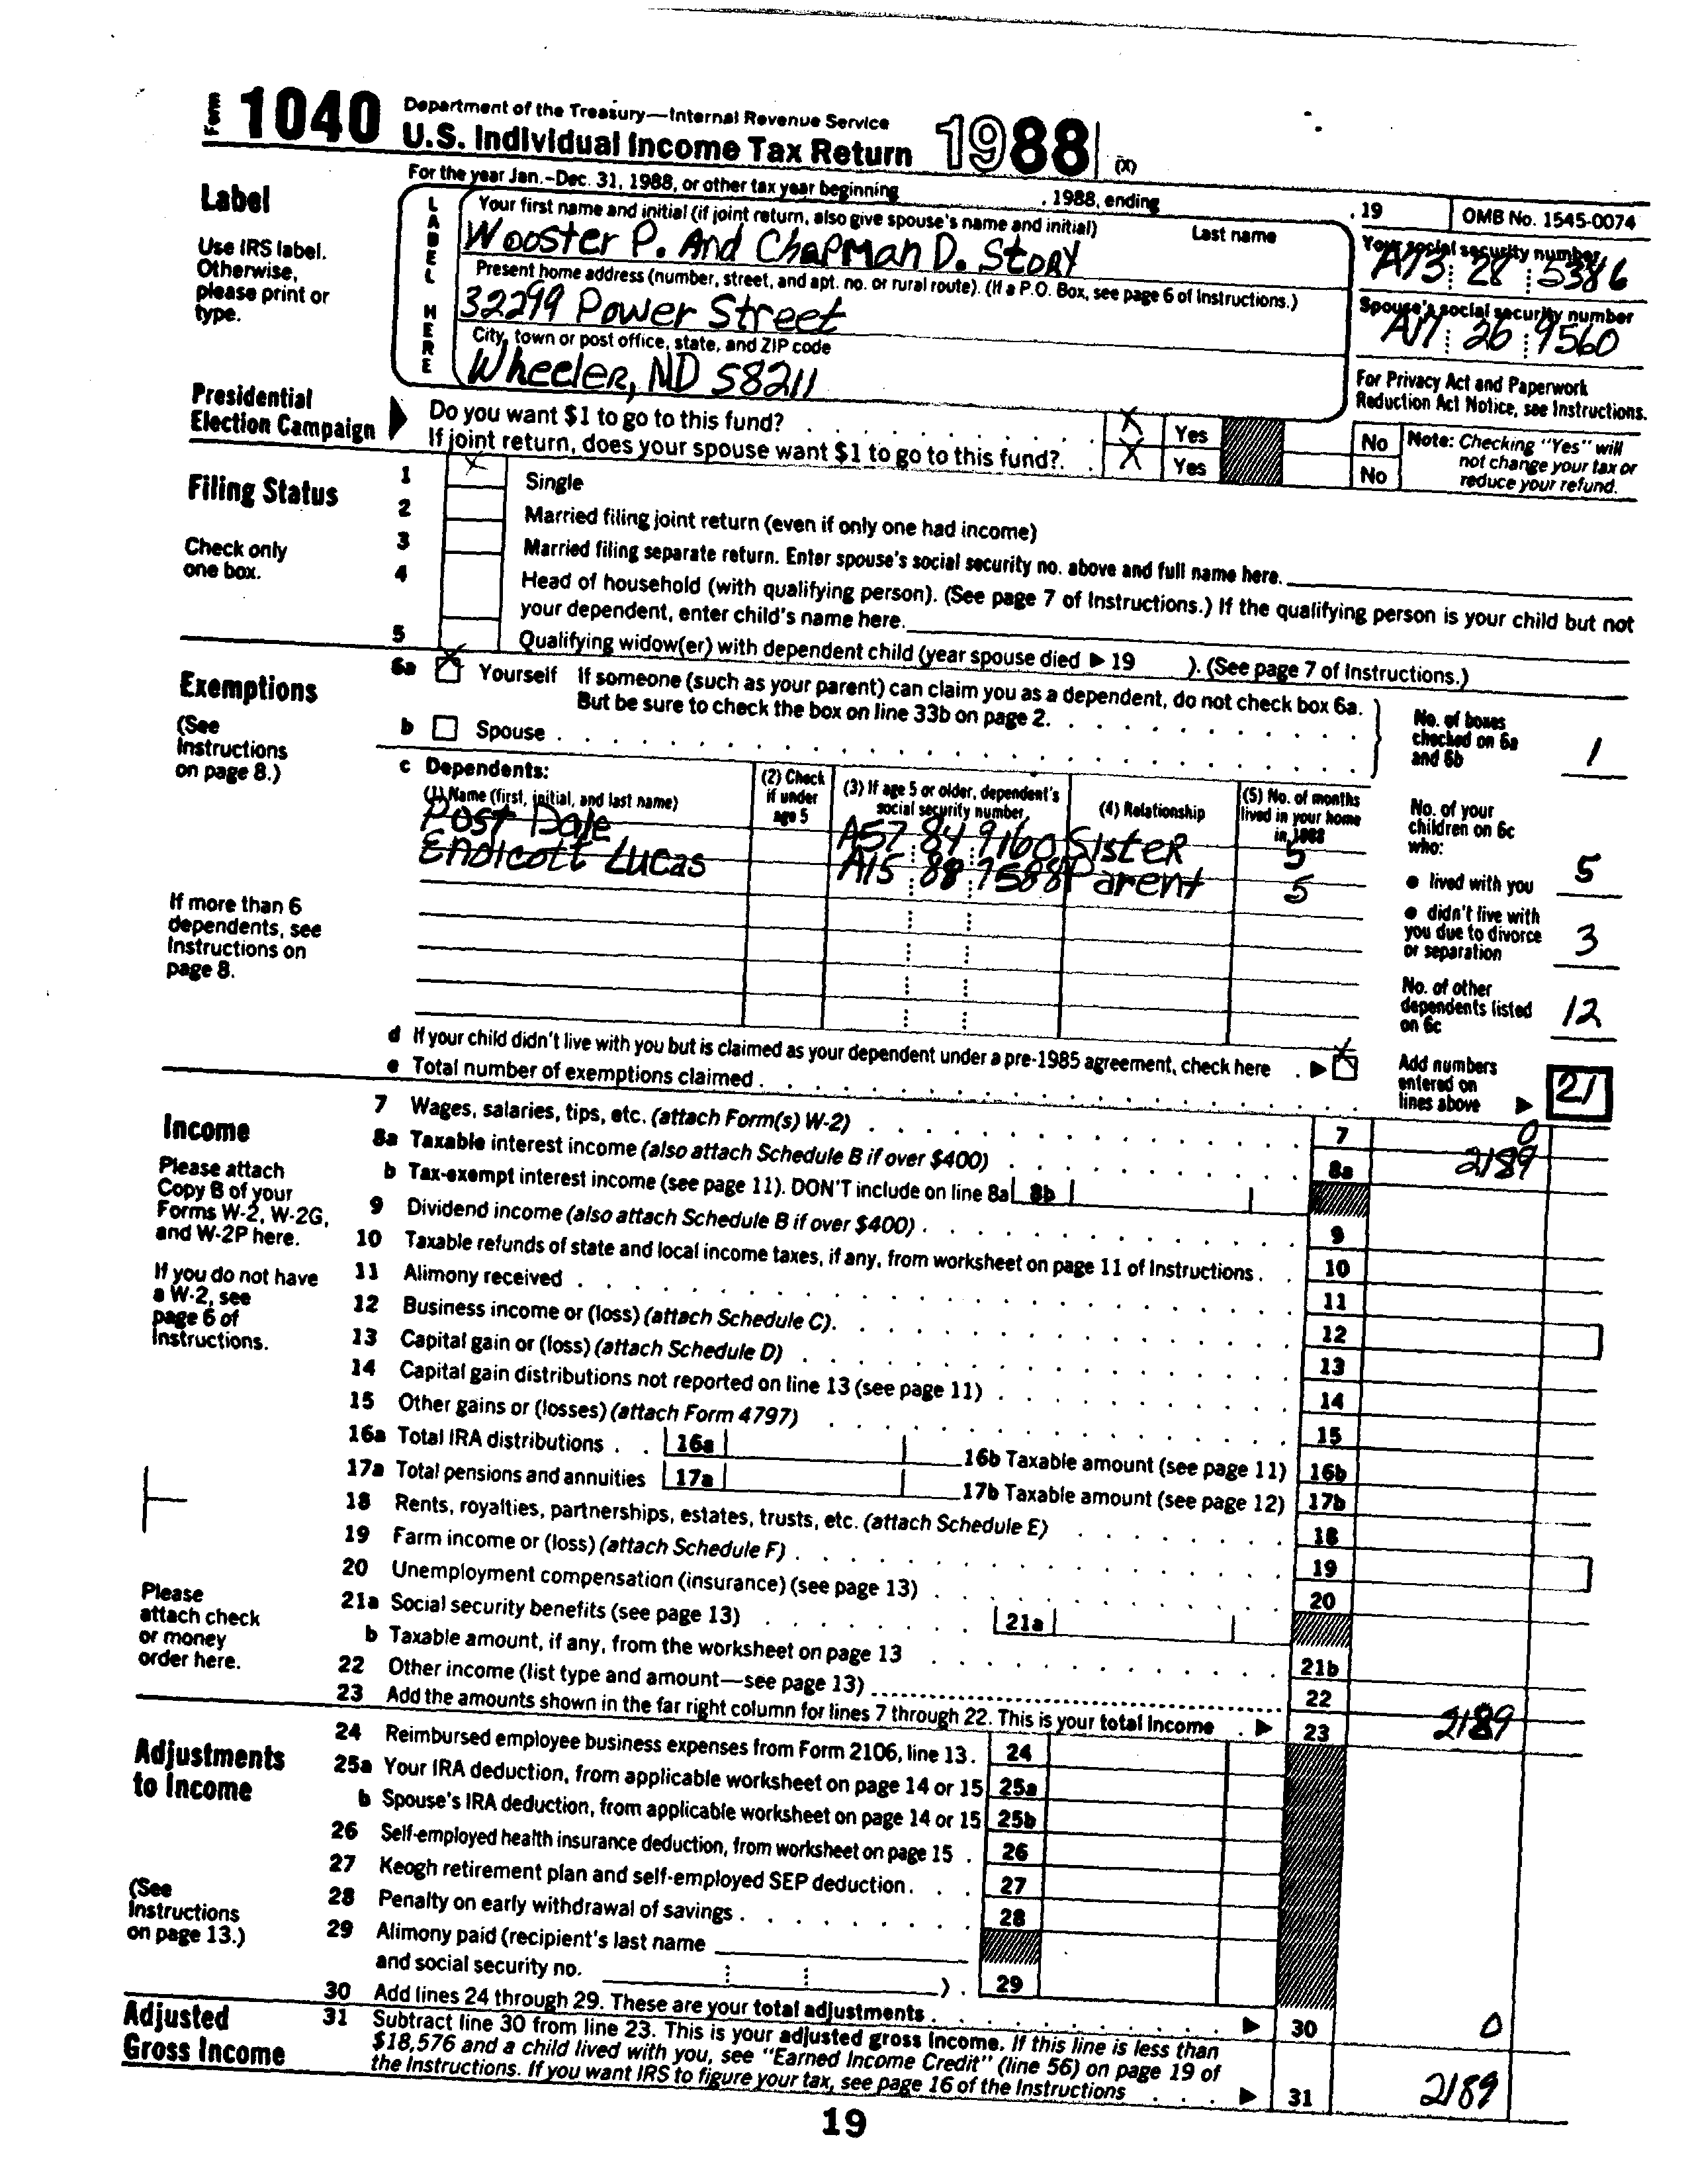 Form 1040 Department of the Treasury—Internal Revenue Service
U.S. Individual Income Tax Return 1988 (X)
For the year Jan.–Dec. 31, 1988, or other tax year beginning , 1988, ending , 19 OMB No. 1545-0074
Label
Use IRS label. Otherwise, please print or type.
LABEL HERE
Your first name and initial (if joint return, also give spouse's name and initial) Last name
Wooster P. And Chapman D. Story
Your social security number
A73 28 5386
Present home address (number, street, and apt. no. or rural route). (If a P.O. Box, see page 6 of Instructions.)
32299 Power Street
Spouse's social security number
A17 26 9560
City, town or post office, state, and ZIP code
Wheeler, ND 58211
For Privacy Act and Paperwork Reduction Act Notice, see Instructions.
Presidential Election Campaign
Do you want $1 to go to this fund? X Yes No
If joint return, does your spouse want $1 to go to this fund? X Yes No
Note: Checking "Yes" will not change your tax or reduce your refund.
Filing Status
Check only one box.
1 X Single
2 Married filing joint return (even if only one had income)
3 Married filing separate return. Enter spouse's social security no. above and full name here.
4 Head of household (with qualifying person). (See page 7 of Instructions.) If the qualifying person is your child but not
your dependent, enter child's name here.
5 Qualifying widow(er) with dependent child (year spouse died ▶ 19 ). (See page 7 of Instructions.)
Exemptions
(See Instructions on page 8.)
6a X Yourself If someone (such as your parent) can claim you as a dependent, do not check box 6a.
But be sure to check the box on line 33b on page 2.
b Spouse
No. of boxes checked on 6a and 6b 1
c Dependents:
(1) Name (first, initial, and last name) (2) Check if under age 5 (3) If age 5 or older, dependent's social security number (4) Relationship (5) No. of months lived in your home in 1988
Post Dale A57 84 9160 Sister 5
Endicott Lucas A15 88 7588 Parent 5
If more than 6 dependents, see Instructions on page 8.
No. of your children on 6c who:
● lived with you 5
● didn't live with you due to divorce or separation 3
No. of other dependents listed on 6c 12
d If your child didn't live with you but is claimed as your dependent under a pre-1985 agreement, check here ▶ X
e Total number of exemptions claimed
Add numbers entered on lines above ▶ 21
Income
Please attach Copy B of your Forms W-2, W-2G, and W-2P here.
If you do not have a W-2, see page 6 of Instructions.
Please attach check or money order here.
7 Wages, salaries, tips, etc. (attach Form(s) W-2) 7 0
8a Taxable interest income (also attach Schedule B if over $400) 8a 2189
b Tax-exempt interest income (see page 11). DON'T include on line 8a 8b
9 Dividend income (also attach Schedule B if over $400) 9
10 Taxable refunds of state and local income taxes, if any, from worksheet on page 11 of Instructions 10
11 Alimony received 11
12 Business income or (loss) (attach Schedule C) 12
13 Capital gain or (loss) (attach Schedule D) 13
14 Capital gain distributions not reported on line 13 (see page 11) 14
15 Other gains or (losses) (attach Form 4797) 15
16a Total IRA distributions 16a 16b Taxable amount (see page 11) 16b
17a Total pensions and annuities 17a 17b Taxable amount (see page 12) 17b
18 Rents, royalties, partnerships, estates, trusts, etc. (attach Schedule E) 18
19 Farm income or (loss) (attach Schedule F) 19
20 Unemployment compensation (insurance) (see page 13) 20
21a Social security benefits (see page 13) 21a
b Taxable amount, if any, from the worksheet on page 13 21b
22 Other income (list type and amount—see page 13) 22
23 Add the amounts shown in the far right column for lines 7 through 22. This is your total income ▶ 23 2189
Adjustments to Income
(See Instructions on page 13.)
24 Reimbursed employee business expenses from Form 2106, line 13. 24
25a Your IRA deduction, from applicable worksheet on page 14 or 15 25a
b Spouse's IRA deduction, from applicable worksheet on page 14 or 15 25b
26 Self-employed health insurance deduction, from worksheet on page 15 26
27 Keogh retirement plan and self-employed SEP deduction 27
28 Penalty on early withdrawal of savings 28
29 Alimony paid (recipient's last name
and social security no. ) 29
30 Add lines 24 through 29. These are your total adjustments ▶ 30 0
Adjusted Gross Income
31 Subtract line 30 from line 23. This is your adjusted gross income. If this line is less than
$18,576 and a child lived with you, see "Earned Income Credit" (line 56) on page 19 of
the Instructions. If you want IRS to figure your tax, see page 16 of the Instructions ▶ 31 2189
19